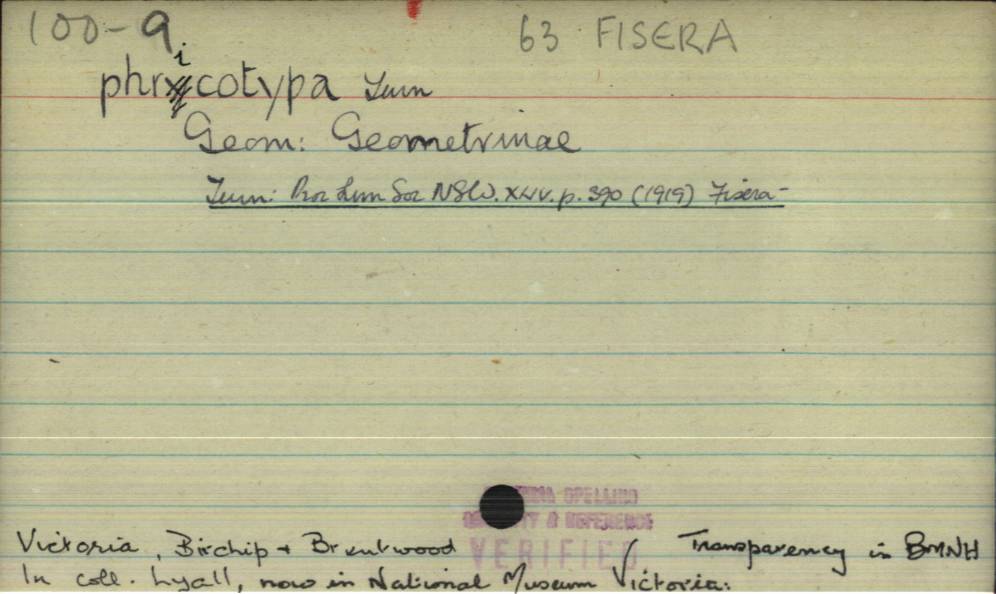 100-9 63 FISERA
phricotypa Turn
Geom: Geometrinae
Turn: Proc Linn Soc NSW. XLIV. p. 390 (1919) Fisera-
SPELLING
& REFERENCE
VERIFIED
Victoria, Birchip + Brentwood Transparency in BMNH
In coll. Lyall, now in National Museum Victoria.